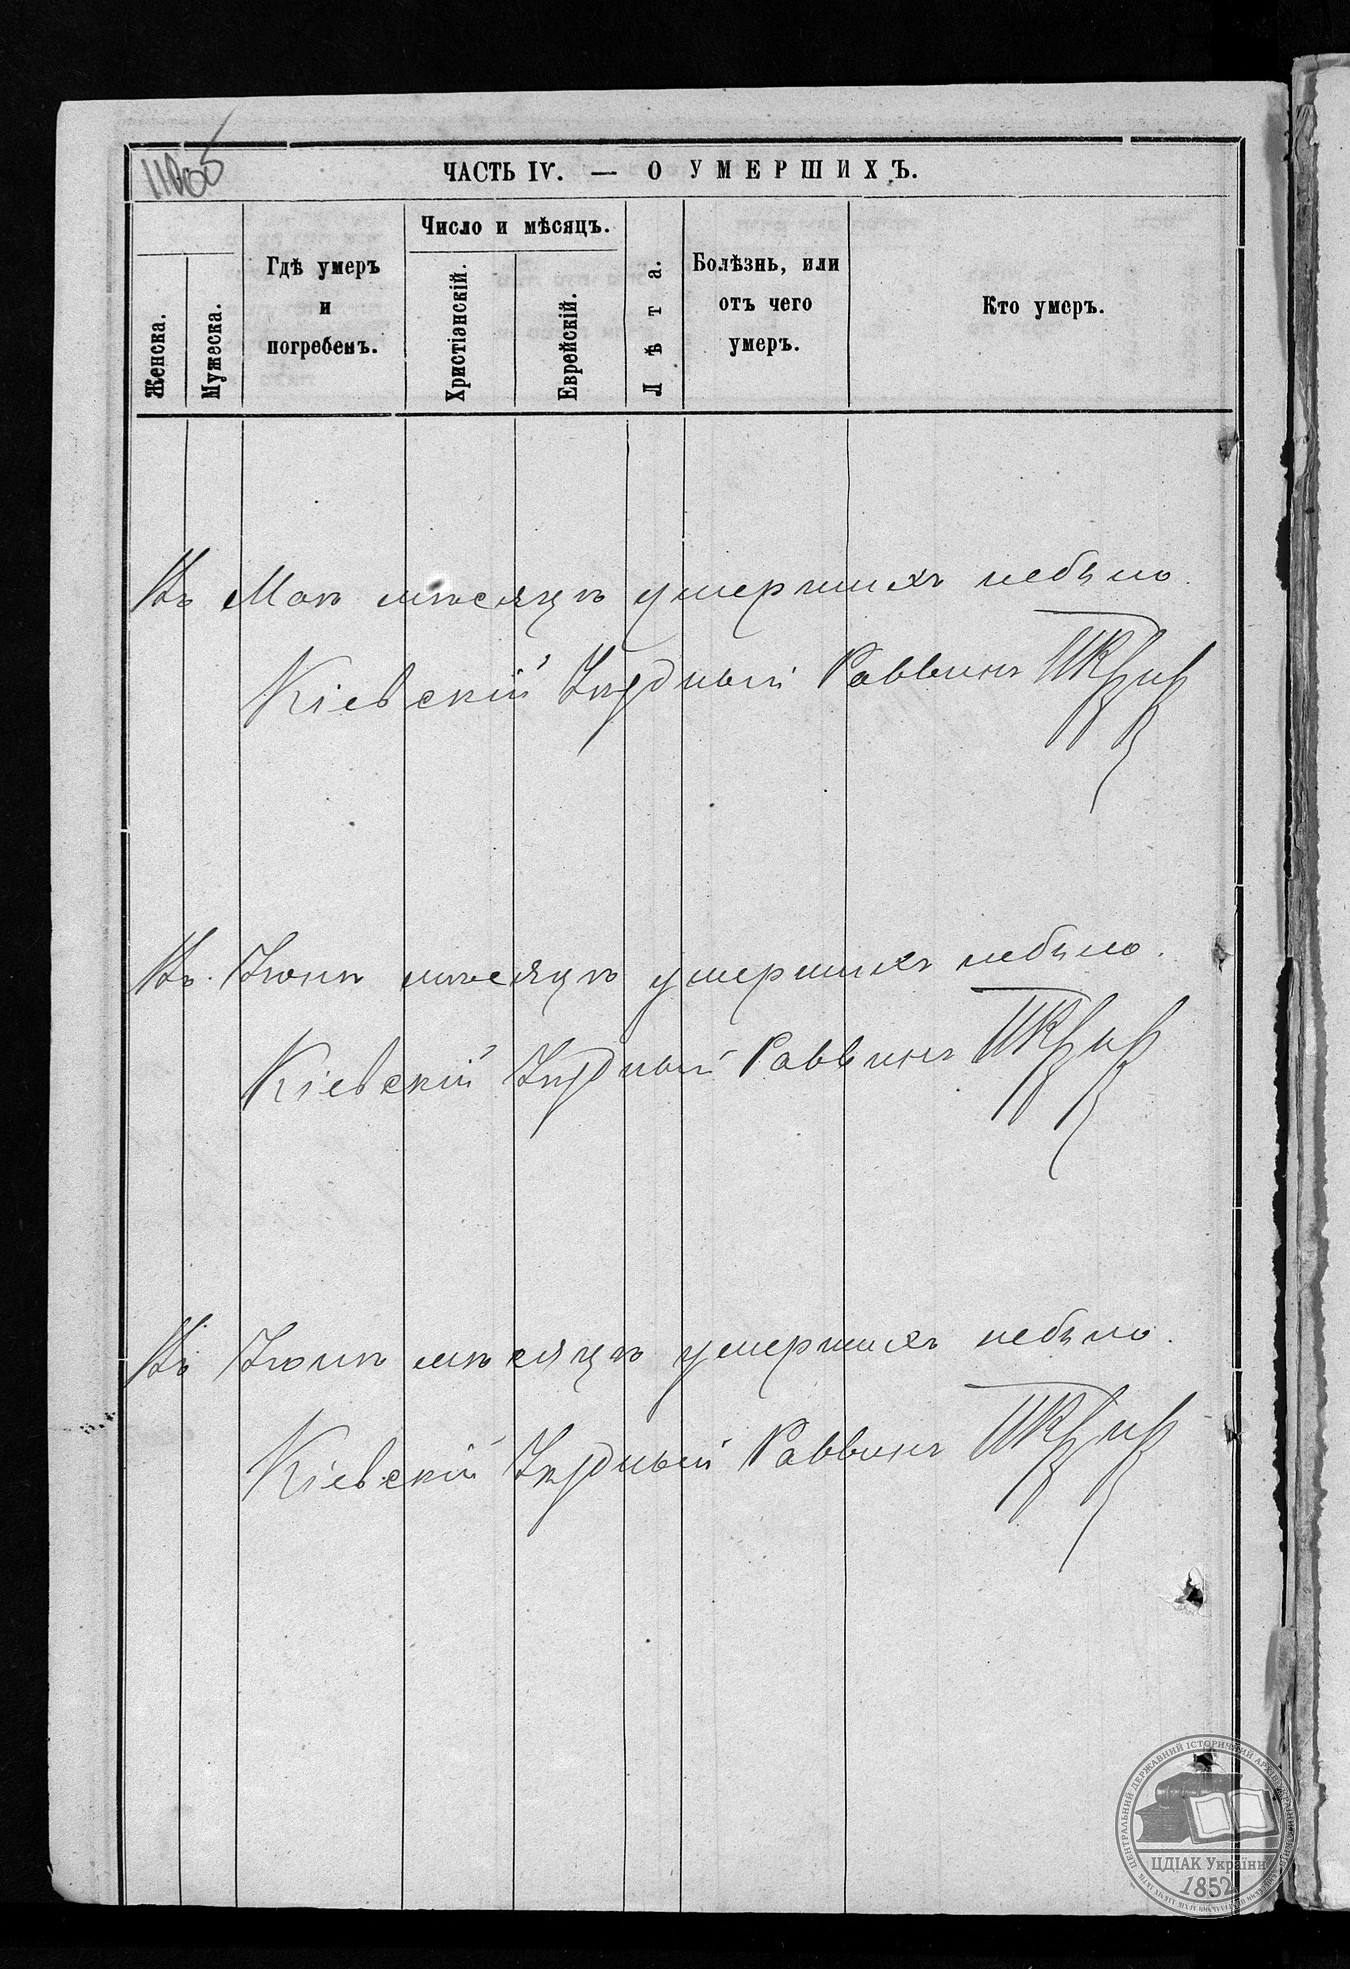 ЧАСТЬ IV. — О УМЕРШИХЪ.
Женска.
Мужеска.
Гдѣ умеръ
и
погребенъ.
Число и мѣсяцъ.
Христіанскій.
Еврейскій.
Лѣта.
Болѣзнь, или
отъ чего
умеръ.
Кто умеръ.
Въ Маѣ мѣсяцѣ умершихъ небыло.
Кіевскій Уѣздный Раввинъ
Въ Іюнѣ мѣсяцѣ умершихъ небыло.
Кіевскій Уѣздный Раввинъ
Въ Іюлѣ мѣсяцѣ умершихъ небыло.
Кіевскій Уѣздный Раввинъ
ЦЕНТРАЛЬНИЙ ДЕРЖАВНИЙ ІСТОРИЧНИЙ АРХІВ
ЦДІАК України
1852